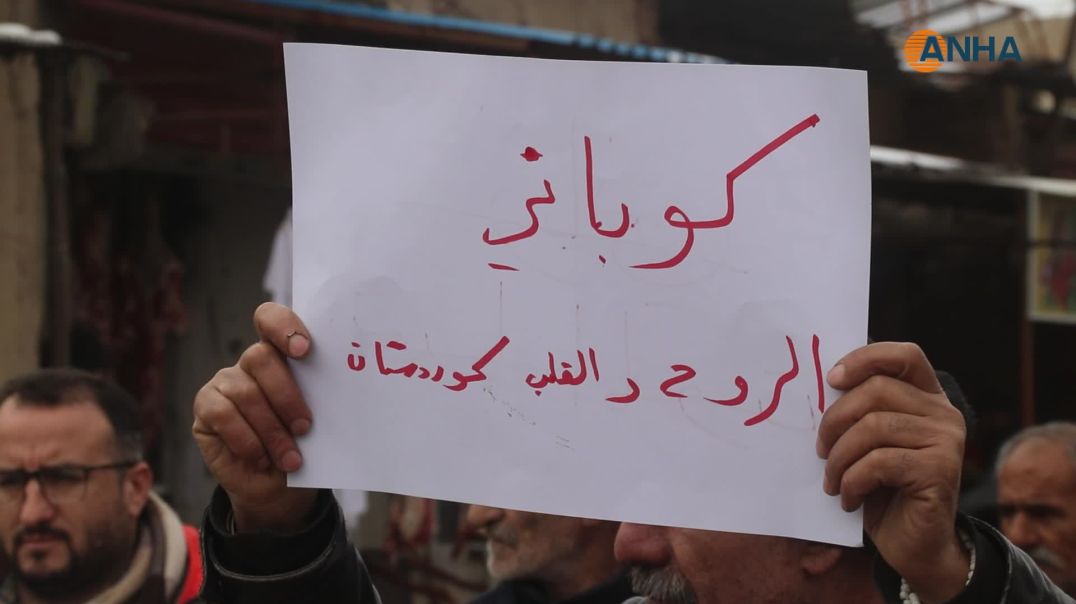 ANHA
كوباني
الروح و القلب كوردستان